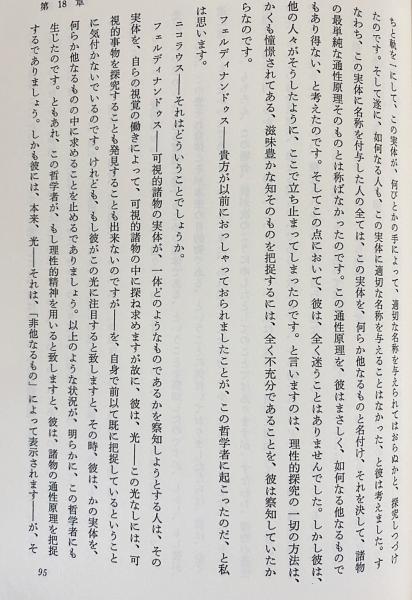 第 18 章
ちと軌を一にして、この実体が、何びとかの手によって、適切な名称を与えられてはおらぬかと、探究しつづけ
たのです。そして遂に、如何なる人も、この実体に適切な名称を与えることはなかった、と彼は考えました。す
なわち、この実体に名称を付与した人の全ては、この実体を、何らか他なるものと名付け、それを決して、諸物
の最単純な通性原理そのものとは称ばなかったのです。この通性原理を、彼はまさしく、如何なる他なるもので
もあり得ない、と考えたのです。そしてこの点において、彼は、全く迷うことはありませんでした。しかし彼は、
他の人々がそうしたように、ここで立ち止まってしまったのです。と言いますのは、理性的探究の一切の方法は、
かくも憧憬されてある、滋味豊かな知そのものを把捉するには、全く不充分であることを、彼は察知していたか
らなのです。
フェルディナンドゥス 貴方が以前におっしゃっておられましたことが、この哲学者に起こったのだ、と私
は思います。
ニコラウス――それはどういうことでしょうか。
フェルディナンドゥス――可視的諸物の実体が、一体どのようなものであるかを察知しようとする人は、その
実体を、自らの視覚の働きによって、可視的諸物の中に探ね求めますが故に、彼は、光――この光なしには、可
視的事物を探究することも発見することも出来ないのですが――を、自身で前以て既に把捉しているということ
に気付かないでいるのです。けれども、もし彼がこの光に注目すると致しますと、その時、彼は、かの実体を、
何らか他なるものの中に求めることを止めるでありましょう。以上のような状況が、明らかに、この哲学者にも
生じたのです。ともあれ、この哲学者が、もし理性的精神を用いると致しますと、彼は、諸物の通性原理を把捉
するでありましょう。しかも彼には、本来、光――それは、「非他なるもの」によって表示されます――が、そ
95